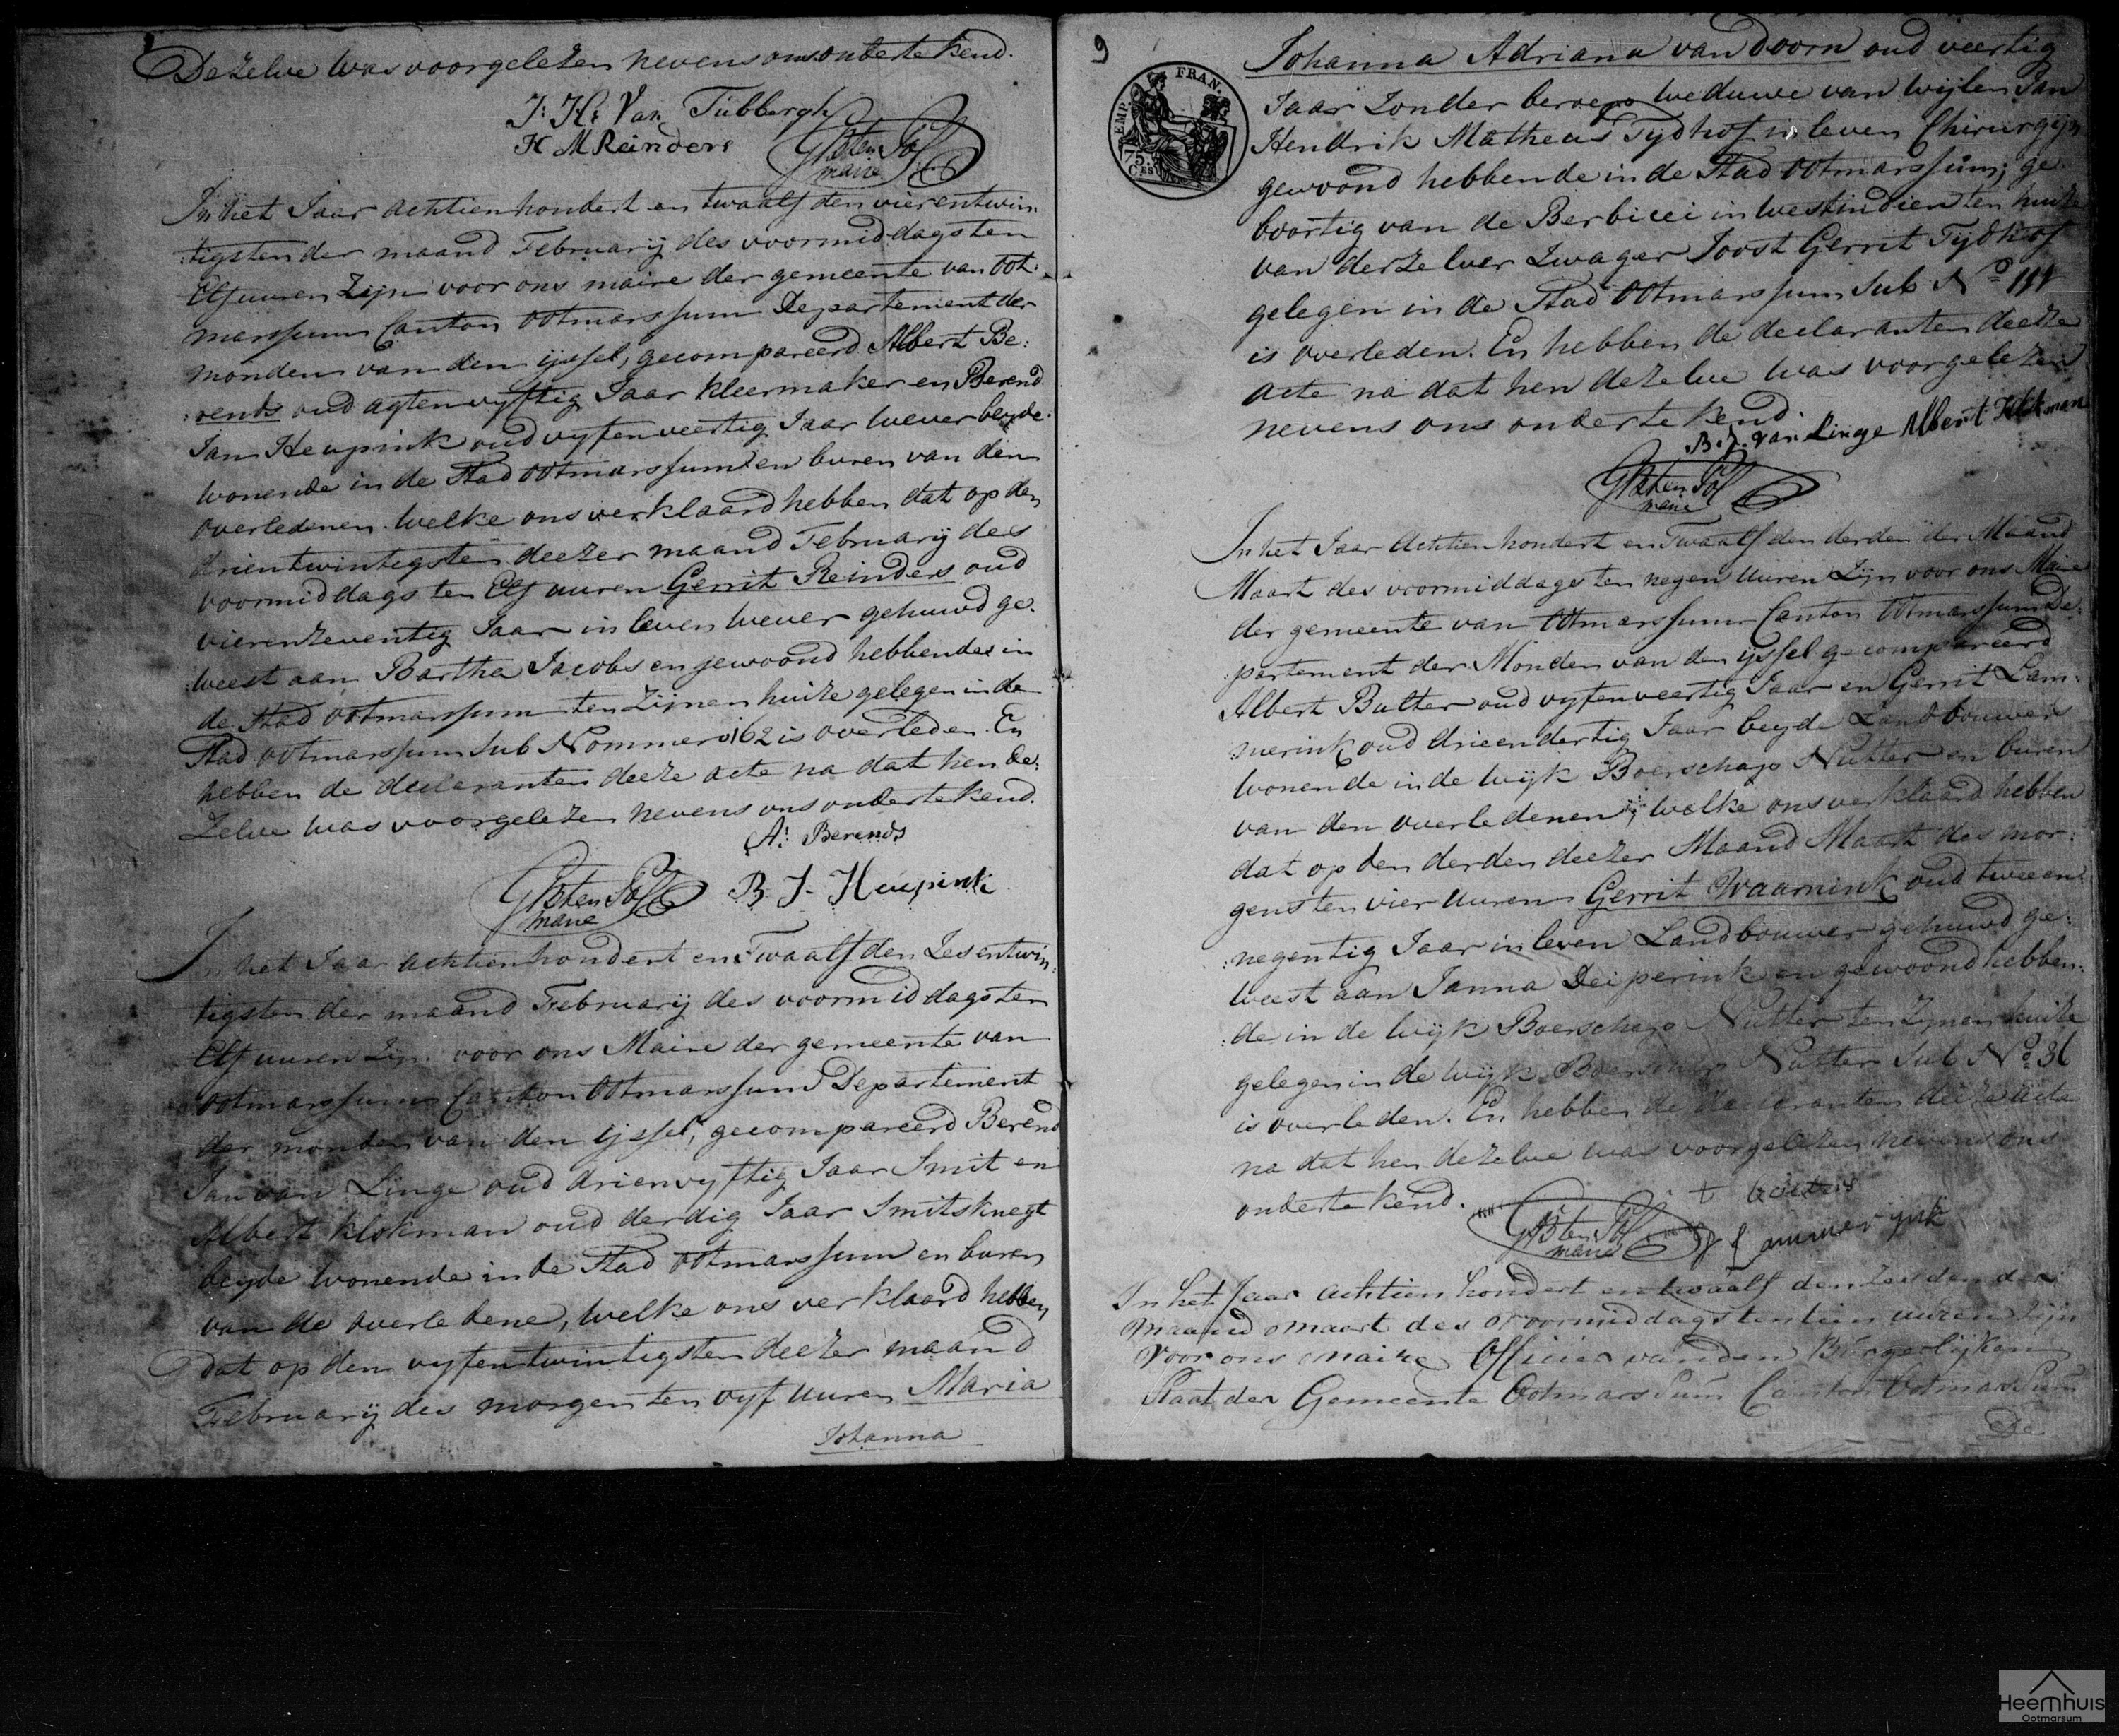 Dezelve was voorgelezen nevens ons ondertekend.
J: H: Van Tubbergh
H M Reinders
maire
In het Jaar achtienhondert en twaalf den vierentwin:
:tigsten der maand Februarij des voormiddags ten
Elf uuren Zijn voor ons maire der gemeente van Oot:
marssum Canton Ootmarssum Departement der
monden van den ijssel, gecompareerd Albert Be:
:rends oud agtenvyftig Jaar kleermaker en Berend
Jan Heupink oud vyfenveertig Jaar wever beyde
wonende in de Stad Ootmarssum en buren van den
overledenen. welke ons verklaard hebben dat op den
drientwintigsten deezer maand Februarij des
voormiddags ten Elf uuren Gerrit Reinders oud
vierenzeventig Jaar in leven wever gehuwd ge:
:weest aan Bartha Jacobs en gewoond hebbende in
de Stad Ootmarssum ten Zijnen huize gelegen in de
Stad Ootmarssum sub Nommero 162 is overleden. En
hebben de declaranten deeze acte na dat hen de:
Zelve was voorgelezen nevens ons ondertekend.
A: Berends
B. J. Heupink
maire
In het Jaar achtienhondert en Twaalf den Zesentwin:
tigsten der maand Februarij des voormiddags ten
Elf uuren Zijn voor ons Maire der gemeente van
Ootmarssum Canton Ootmarssum Departement
der monden van den ijssel, gecompareerd Berend
Jan van Linge oud drienvyftig Jaar Smit en
Albert Klokman oud derdig Jaar Smitsknegt
beyde wonende in de Stad Ootmarssum en buren
van de overledene, welke ons verklaard hebben
dat op den vyfentwintigsten deezer maand
Februarij des morgens ten vyf uuren Maria
Johanna
9
EMP. FRAN.
75.
CES
Johanna Adriana van Doorn oud veertig
Jaar Zonder beroep weduwe van wijlen Jan
Hendrik Matheas Tydhof in leven Chirurgijn
gewoond hebbende in de Stad Ootmarssum; ge:
boortig van de Berbicei in westindien ten huize
van derzelver Zwager Joost Gerrit Tijdhof
gelegen in de Stad Ootmarssum sub No
is overleden. En hebben de declaranten deeze
acte na dat hen dezelve was voorgelezen
nevens ons ondertekend.
B. J. van Linge Albert Klokman
maire
In het Jaar Achtienhondert en Twaalf den derden der Maand
Maart des voormiddags ten negen Uuren Zijn voor ons Maire
der gemeente van Ootmarssum Canton Ootmarssum De:
:partement der Monden van den ijssel gecompareerd
Albert Bulter oud vyfenveertig Jaar en Gerrit Lam:
:merink oud drieendertig Jaar beyde Landbouwers
wonende in de wijk Boerschap Nutter en buren
van den overledenen; welke ons verklaard hebben
dat op den derden deezer Maand Maart des mor:
gens ten vier uuren Gerrit Waarnink oud tweeen:
:negentig Jaar in leven Landbouwer gehuwd ge:
weest aan Janna Deiperink en gewoond hebben:
:de in de wijk Boerschap Nutter ten Zijnen huize
gelegen in de wijk Boerschap Nutter sub No 36
is overleden. En hebben de declaranten deeze acte
na dat hen dezelve was voorgelezen nevens ons
ondertekend.
maire
Lammerynk
In het Jaar achtien hondert en twaalf den Zesden der
maand maart des Voormiddags ten tien uuren zijn
Voor ons maire Officier van den Burgerlijken
Staat der Gemeente Ootmarssum Canton Ootmarssum
De
Heemhuis
Ootmarsum